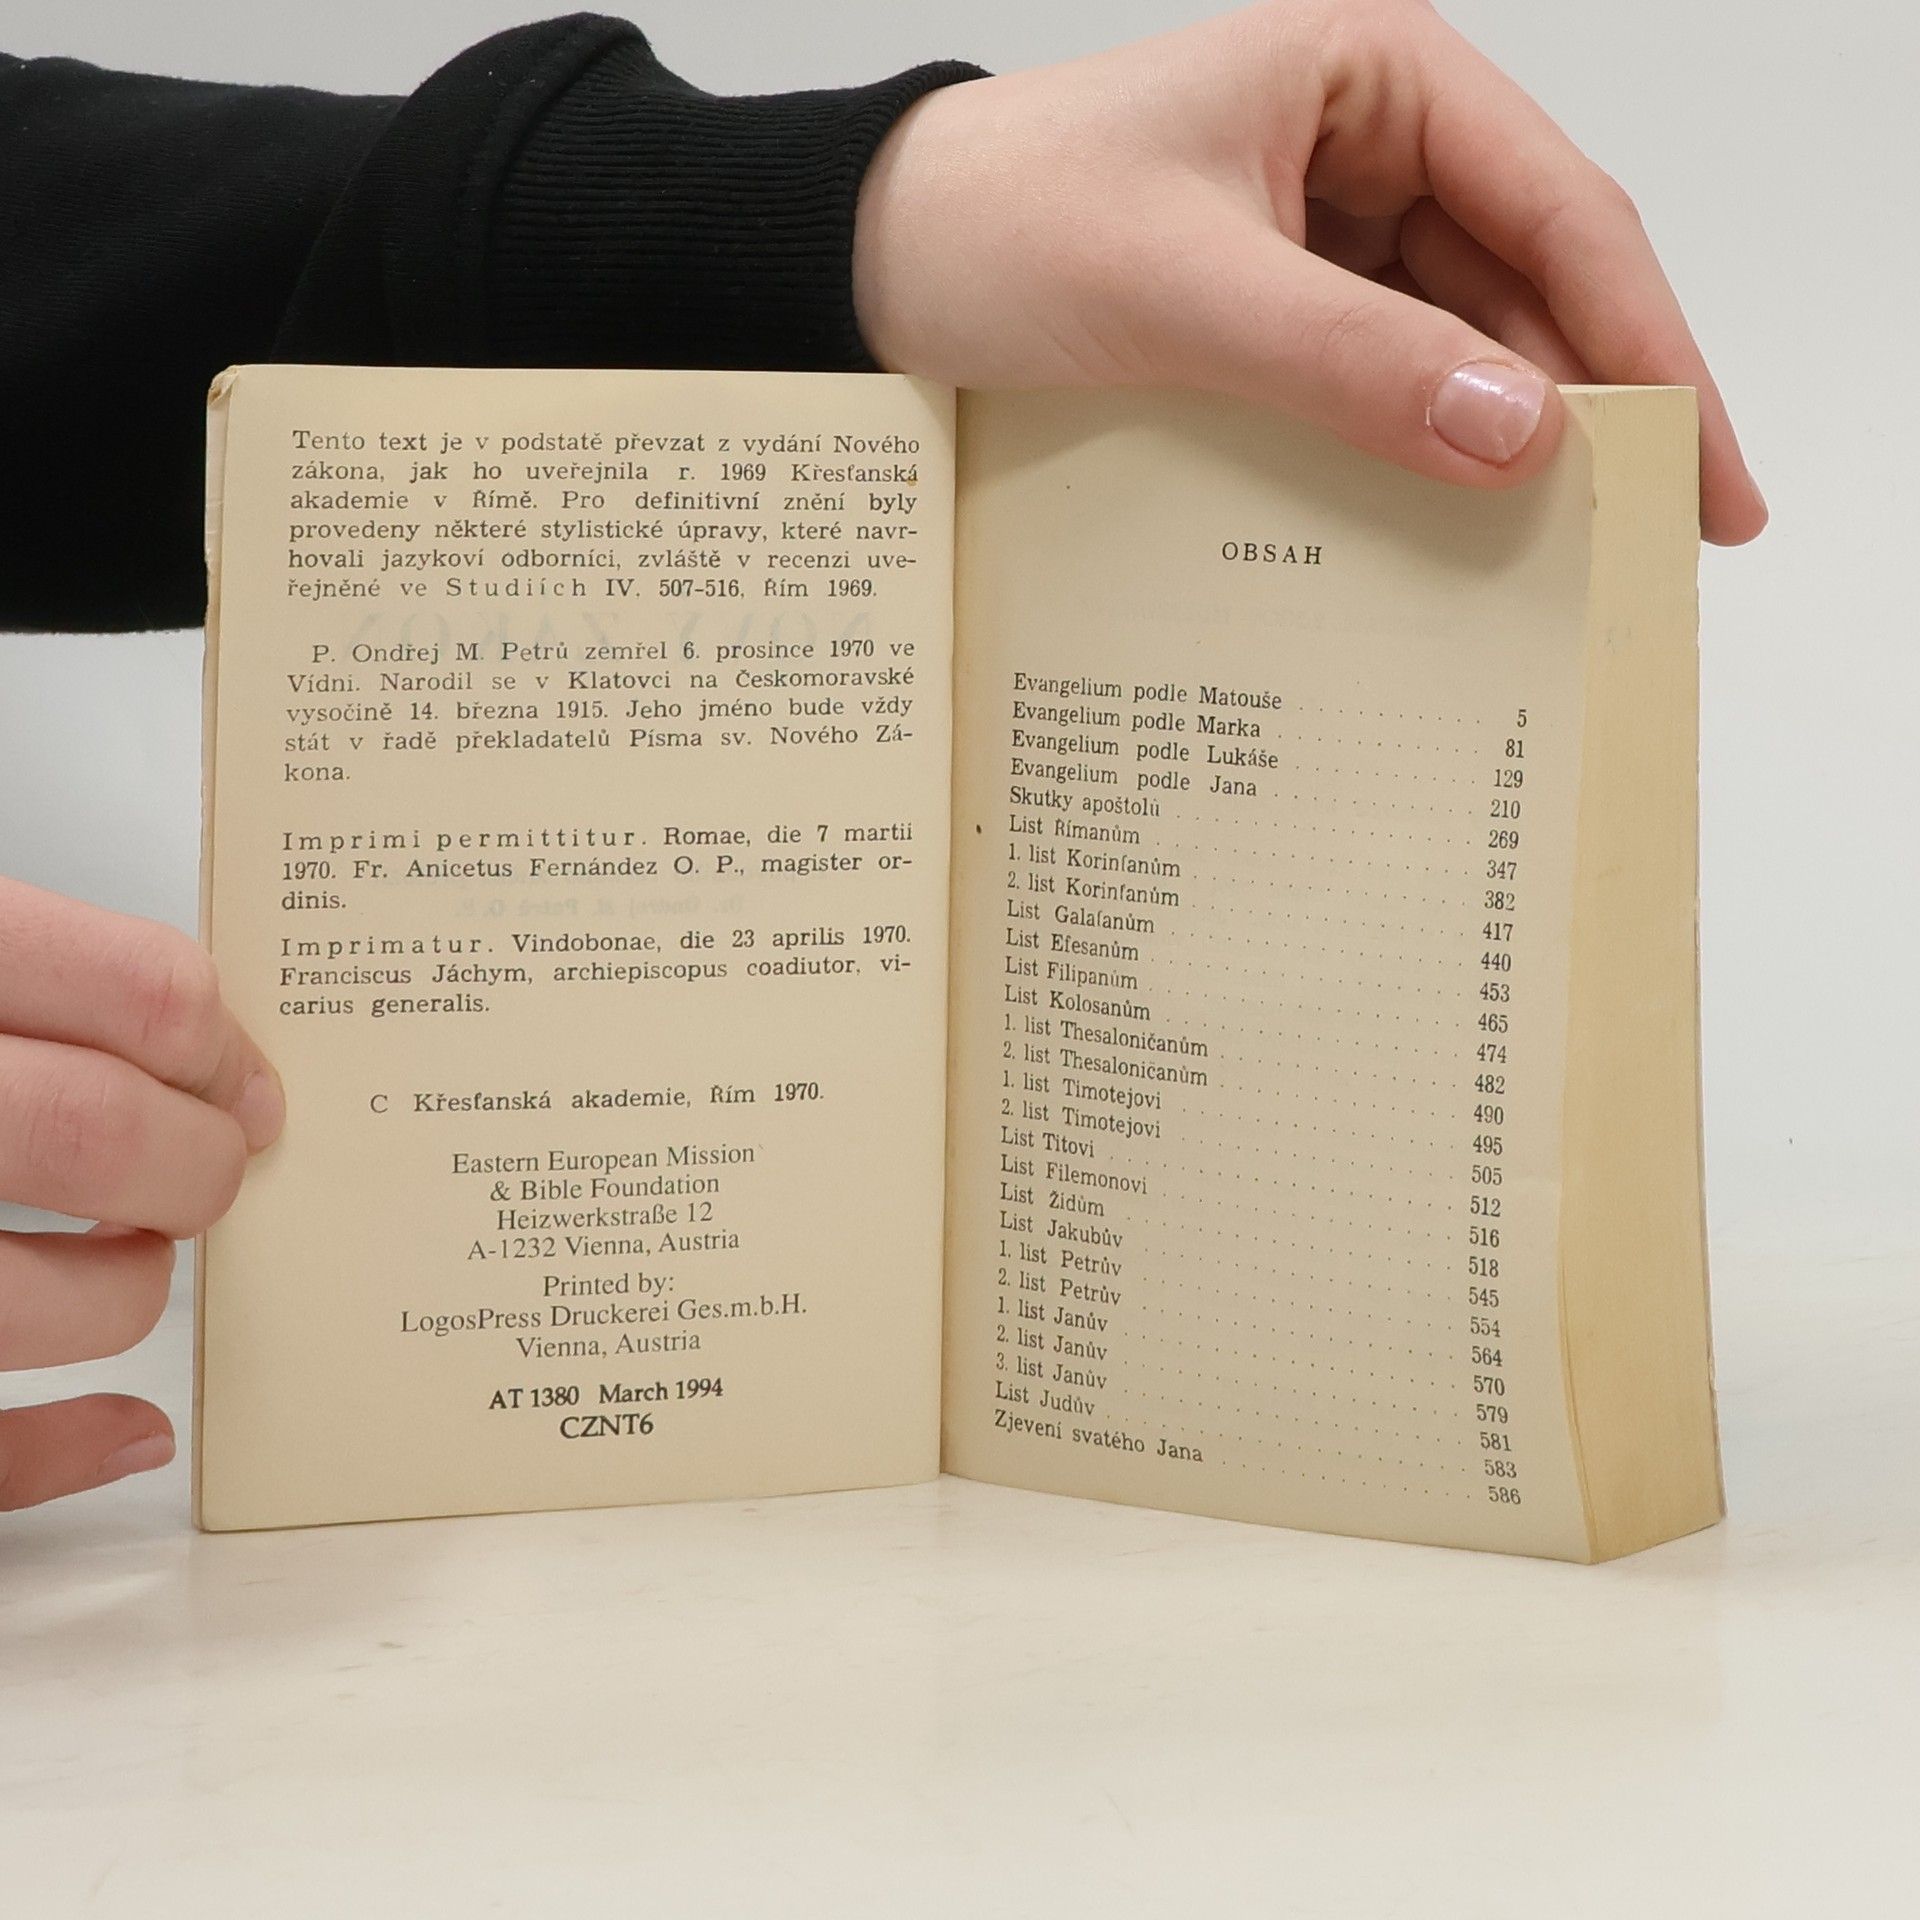 Tento text je v podstatě převzat z vydání Nového
zákona, jak ho uveřejnila r. 1969 Křesťanská
akademie v Římě. Pro definitivní znění byly
provedeny některé stylistické úpravy, které navr-
hovali jazykoví odborníci, zvláště v recenzi uve-
řejněné ve Studiích IV. 507-516, Řím 1969.
P. Ondřej M. Petrů zemřel 6. prosince 1970 ve
Vídni. Narodil se v Klatovci na Českomoravské
vysočině 14. března 1915. Jeho jméno bude vždy
stát v řadě překladatelů Písma sv. Nového Zá-
kona.
Imprimi permittitur. Romae, die 7 martii
1970. Fr. Anicetus Fernández O. P., magister or-
dinis.
Imprimatur. Vindobonae, die 23 aprilis 1970.
Franciscus Jáchym, archiepiscopus coadiutor, vi-
carius generalis.
C Křesťanská akademie, Řím 1970.
Eastern European Mission
& Bible Foundation
Heizwerkstraße 12
A-1232 Vienna, Austria
Printed by:
LogosPress Druckerei Ges.m.b.H.
Vienna, Austria
AT 1380 March 1994
CZNT6
OBSAH
Evangelium podle Matouše . . . . . . . . . . 5
Evangelium podle Marka . . . . . . . . . . 81
Evangelium podle Lukáše . . . . . . . . . . 129
Evangelium podle Jana . . . . . . . . . . 210
Skutky apoštolů . . . . . . . . . . 269
List Římanům . . . . . . . . . . 347
1. list Korinťanům . . . . . . . . . . 382
2. list Korinťanům . . . . . . . . . . 417
List Galaťanům . . . . . . . . . . 440
List Efesanům . . . . . . . . . . 453
List Filipanům . . . . . . . . . . 465
List Kolosanům . . . . . . . . . . 474
1. list Thesaloničanům . . . . . . . . . . 482
2. list Thesaloničanům . . . . . . . . . . 490
1. list Timotejovi . . . . . . . . . . 495
2. list Timotejovi . . . . . . . . . . 505
List Titovi . . . . . . . . . . 512
List Filemonovi . . . . . . . . . . 516
List Židům . . . . . . . . . . 518
List Jakubův . . . . . . . . . . 545
1. list Petrův . . . . . . . . . . 554
2. list Petrův . . . . . . . . . . 564
1. list Janův . . . . . . . . . . 570
2. list Janův . . . . . . . . . . 579
3. list Janův . . . . . . . . . . 581
List Judův . . . . . . . . . . 583
Zjevení svatého Jana . . . . . . . . . . 586